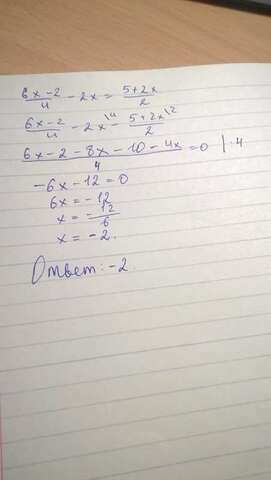 (6x-2)/4 - 2x = (5+2x)/2
(6x-2)/4 - 2x\4 - (5+2x\2)/2
(6x-2-8x-10-4x)/4 = 0 |·4
-6x-12=0
6x=-12
x=-12/6
x=-2.
Ответ: -2